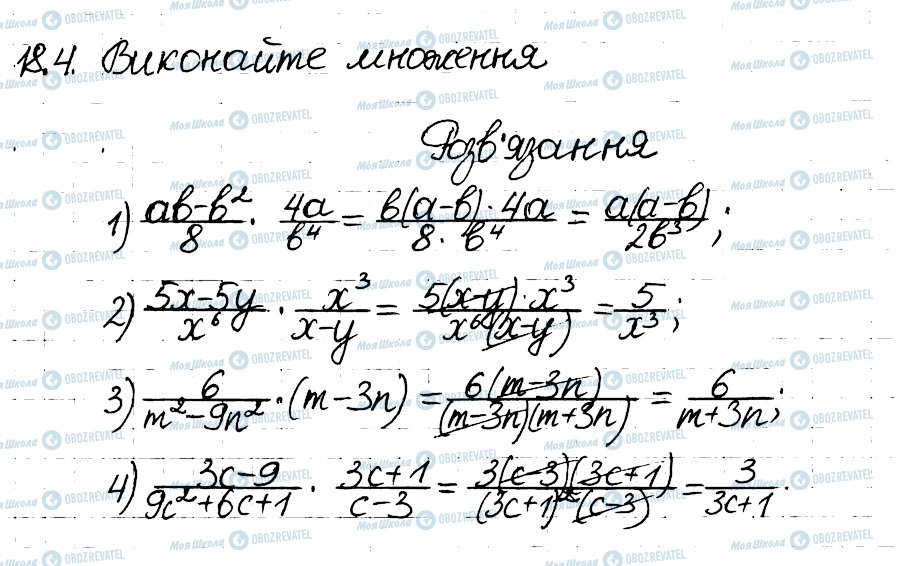 18.4. Виконайте множення
Розв'язання
1) (ab-b²)/8 · 4a/b⁴ = (b(a-b)·4a)/(8·b⁴) = a(a-b)/2b³;
2) (5x-5y)/x⁶ · x³/(x-y) = (5(x-y)·x³)/(x⁶(x-y)) = 5/x³;
3) 6/(m²-9n²) · (m-3n) = 6(m-3n)/((m-3n)(m+3n)) = 6/(m+3n);
4) (3c-9)/(9c²+6c+1) · (3c+1)/(c-3) = (3(c-3)(3c+1))/((3c+1)²(c-3)) = 3/(3c+1).